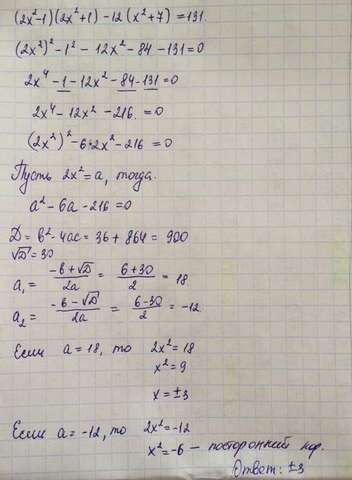 (2x²-1)(2x²+1)-12(x²+7)=131.
(2x²)²-1²-12x²-84-131=0
2x⁴-1-12x²-84-131=0
2x⁴-12x²-216=0
(2x²)²-6·2x²-216=0
Пусть 2x²=a, тогда.
a²-6a-216=0
D=b²-4ac=36+864=900
√D=30
a₁= (-b+√D)/2a = (6+30)/2 = 18
a₂= (-b-√D)/2a = (6-30)/2 = -12
Если a=18, то 2x²=18
x²=9
x=±3
Если a=-12, то 2x²=-12
x²=-6 – посторонний кор.
Ответ: ±3